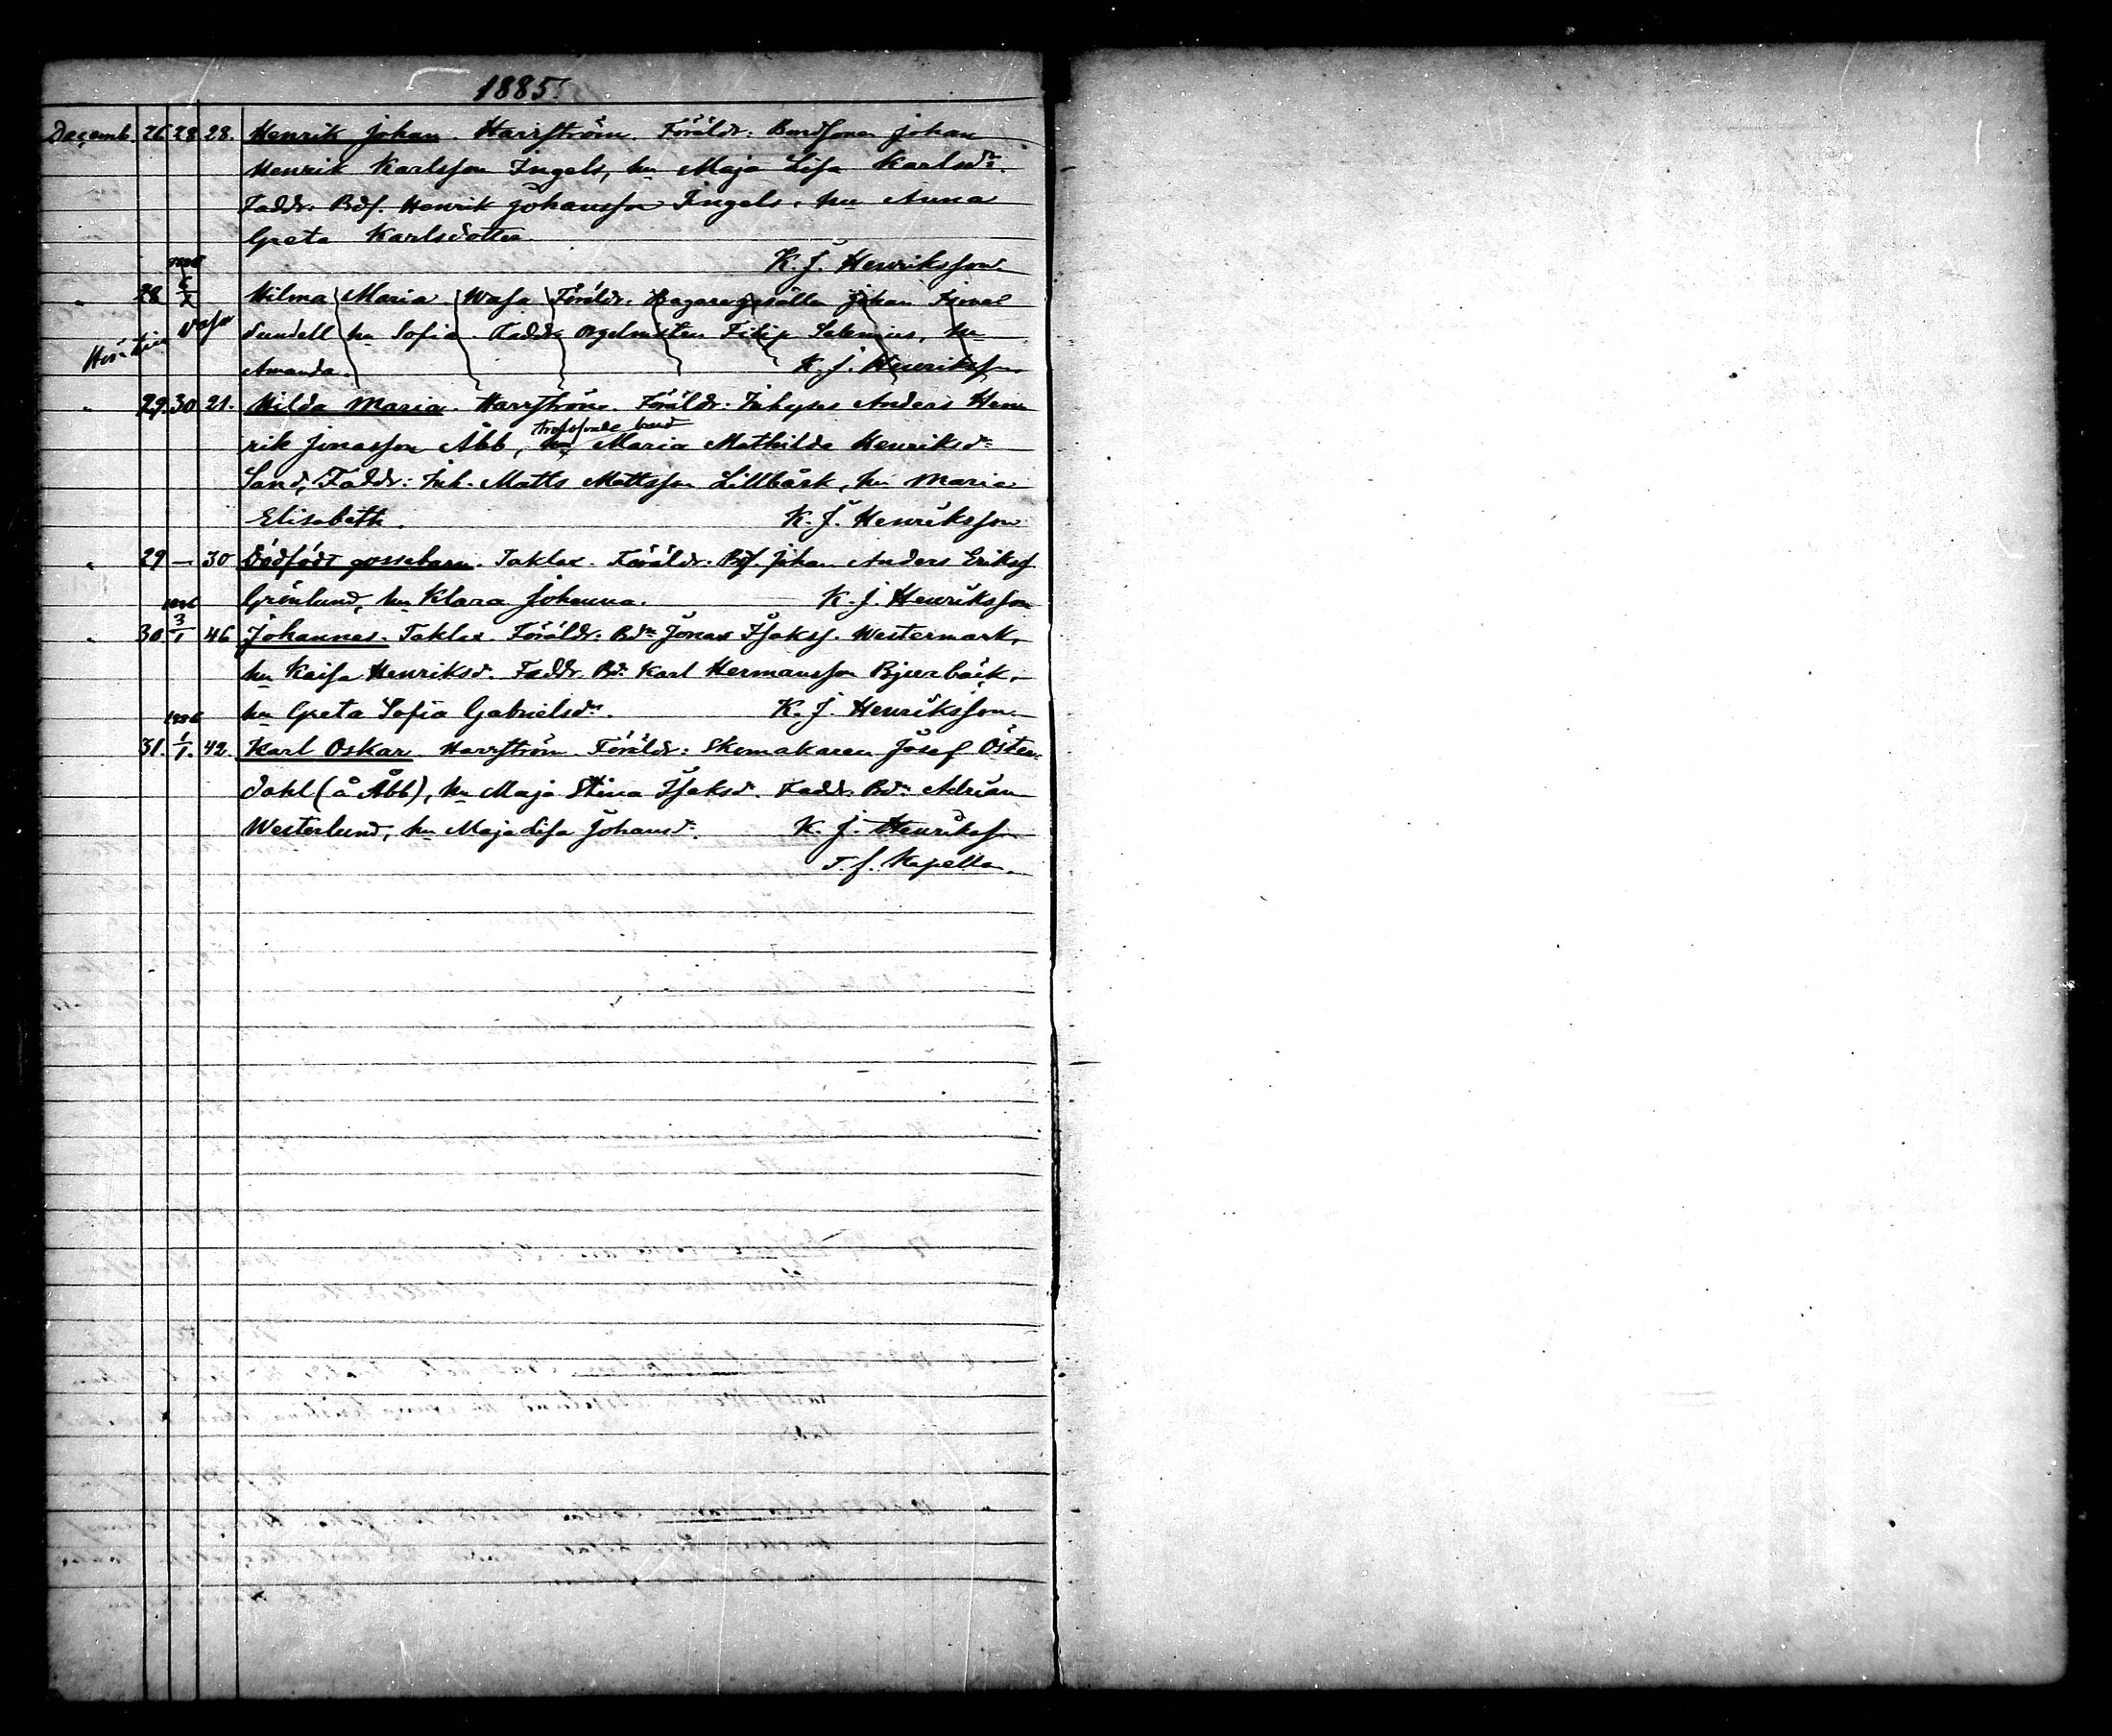 1885.
Decemb. 26 28 28. Henrik Johan. Harrström. Föräldr. Bondsonen Johan
Henrik Karlsson Ingels, hu Maja Lisa Karlsdr.
Faddr. Bds. Henrik Johansson Ingels, hu Anna
Greta Karlsdotter.
K. J. Henriksson.
1886
" 28 6/2 Hilma Maria. Wasa. Föräldr. Bagaregesällen Johan
Sundell hu Sofia. Faddr. Orgelnisten Filip Salenius, hu
Vasa
Amanda. K. J. Henriksson.
" 29. 30 21. Hilda Maria. Harrström. Föräldr: Inhyses Anders Hen
rik Jonasson Åbb, hu Maria Mathilda Henriksdr
Sand, Faddr: Inh. Matts Mattsson Lillbåsk, hu Maria
Elisabeth. K. J. Henriksson
" 29 — 30 Dödfödt gossebarn. Taklax. Föräldr. Bds. Johan Anders Erikss.
Grönlund, hu Klara Johanna. K. J. Henriksson
1886
" 30. 3/1 46 Johannes. Taklax. Föräldr. Bdn Jonas Isakss. Westermark,
hu Kaisa Henriksd. Faddr. Bd. Karl Hermansson Bjurbäck,
hu Greta Sofia Gabrielsdr. K. J. Henriksson.
1886
31. 1/1. 42. Karl Oskar. Harrström. Föräldr: Skomakaren Josef Öster-
dahl (å Åbb), hu Maja Stina Isaksd. Faddr. Bdn Adrian
Westerlund, hu Maja Lisa Johansd. K. J. Henriksson
T. f. Kapellan.